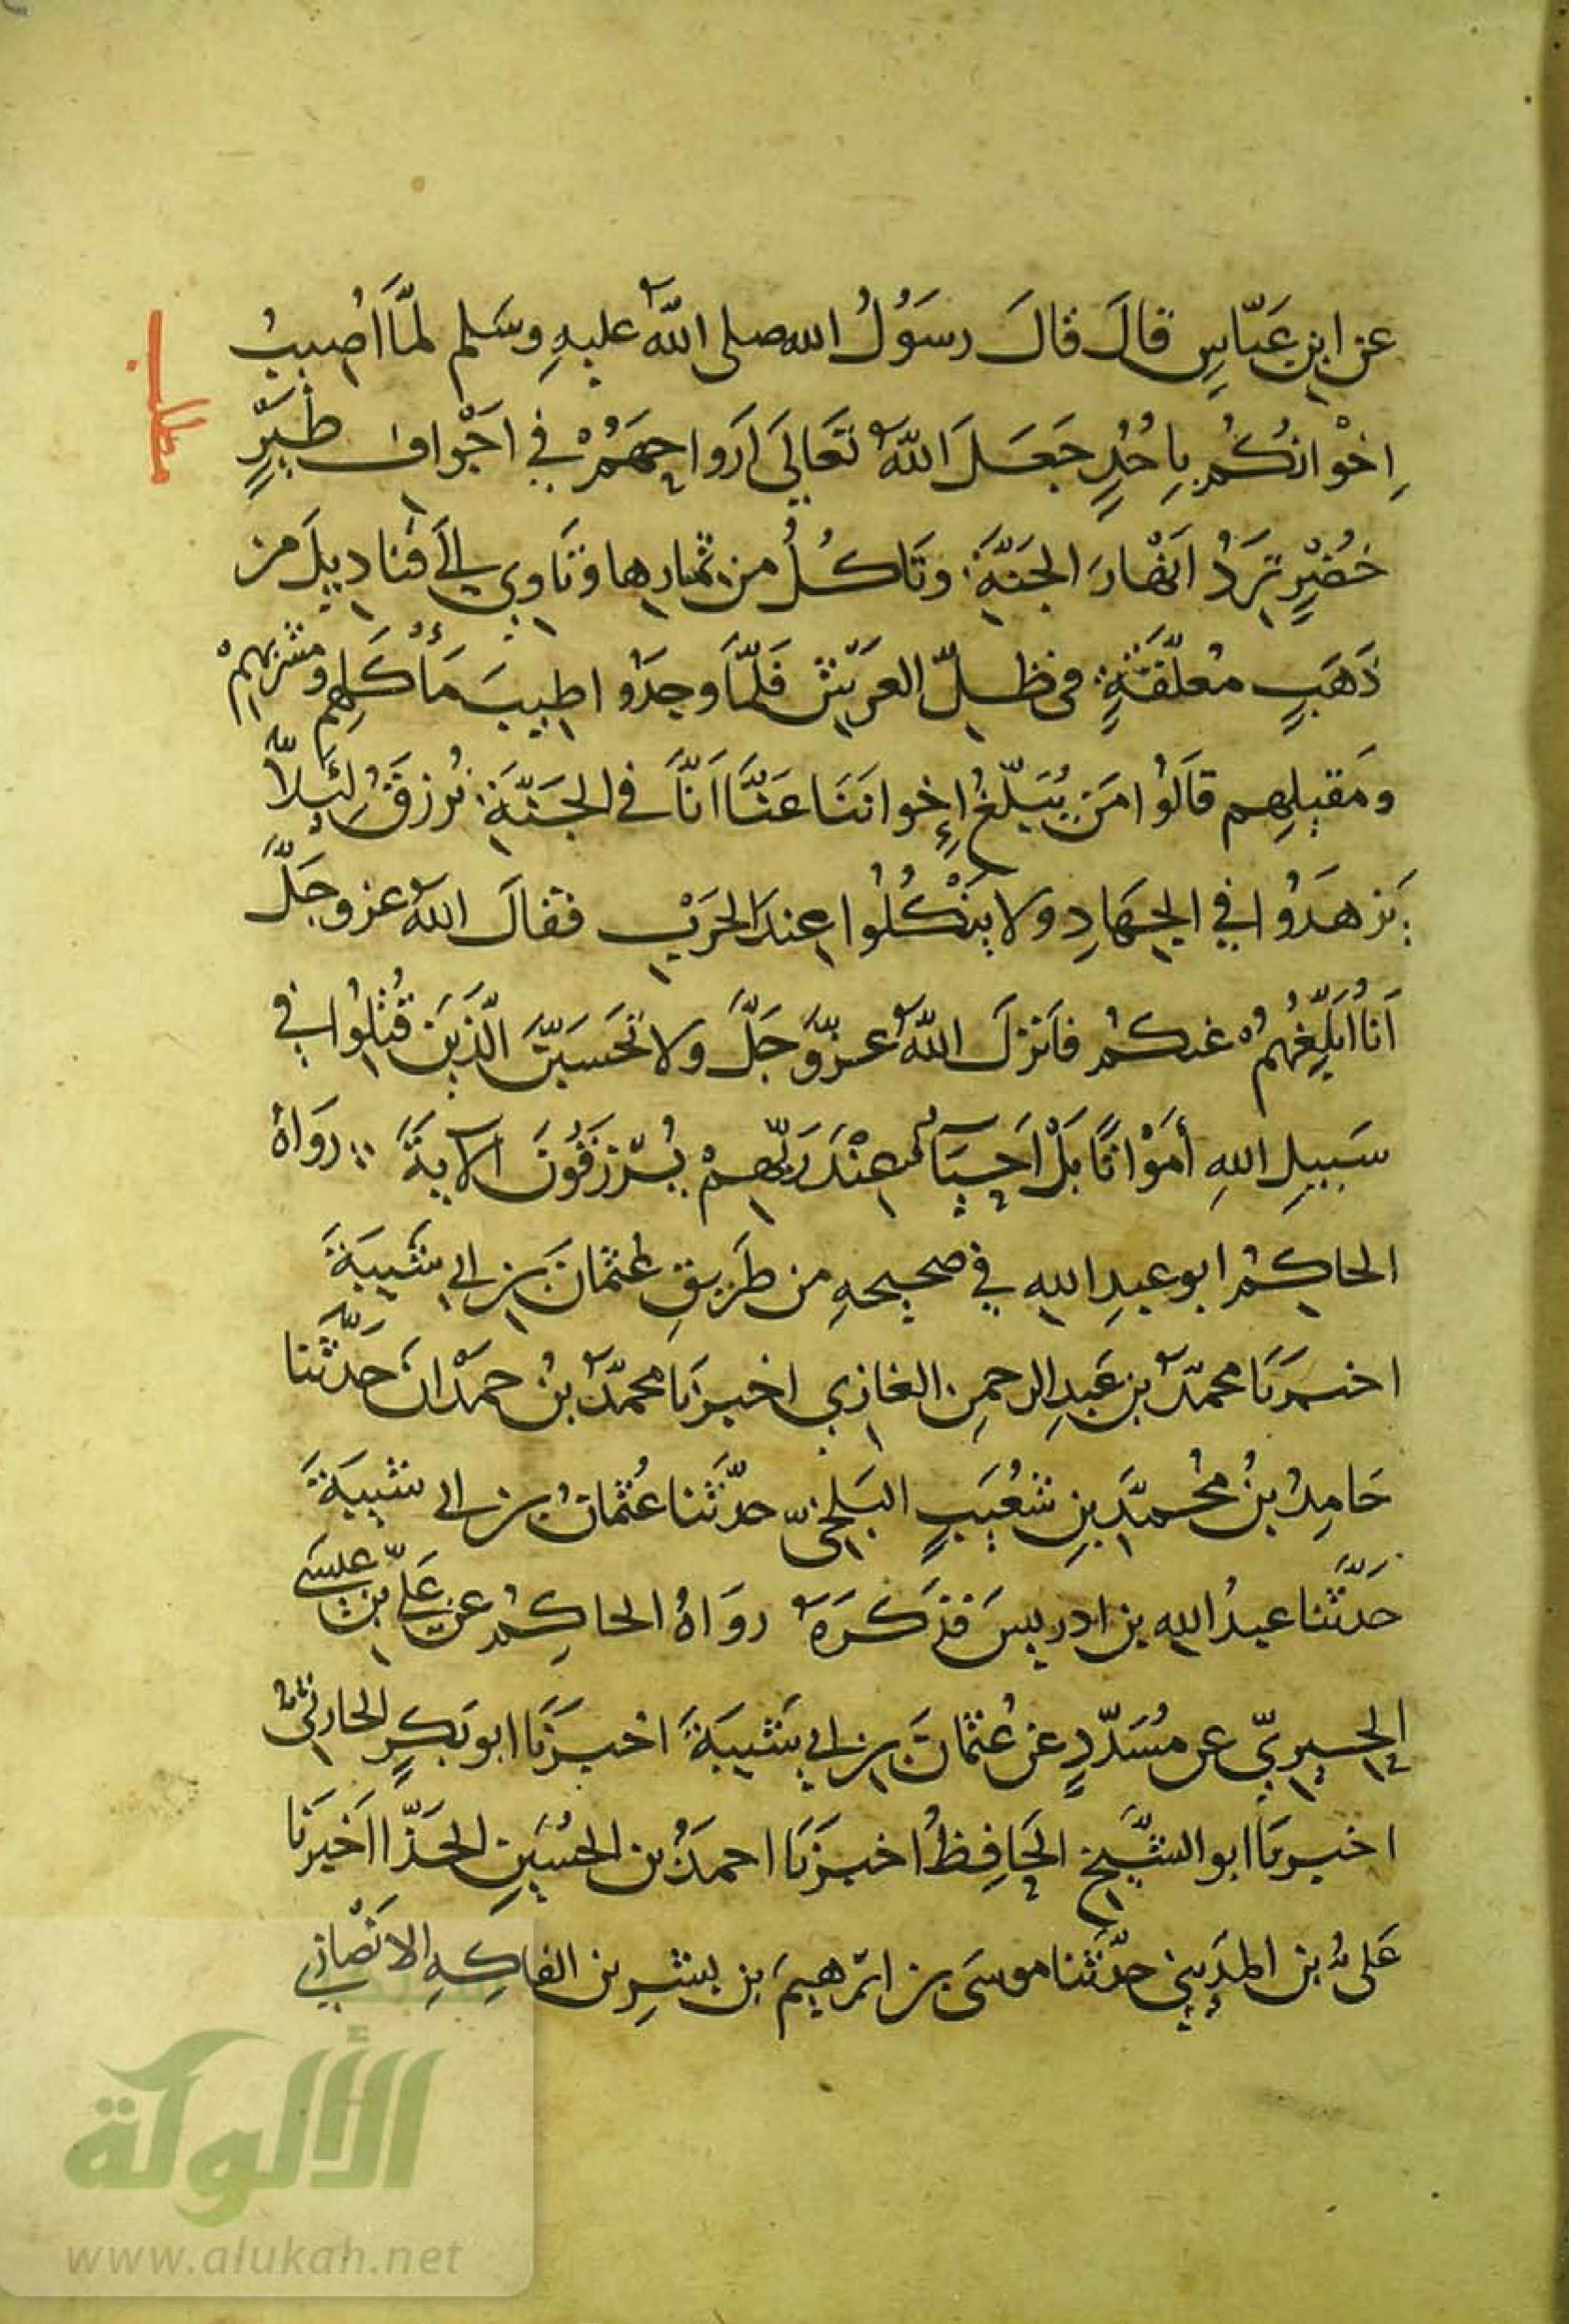 عن ابنِ عَبّاسٍ قالَ قالَ رسَوُلُ الله صلى اللهُ عليهِ وسَلم لمّا اُصيبَ
اِخْوانكُم باُحُدٍ جَعَلَ اللهُ تعَالىَ اَرَواحهَمُ في اجْوافِ طَيرٍ
خُضْرٍ ترَدُ انَهْارَ الجَنّةِ وتَاكُلُ من ثمارِها وتَاوِي الىَ قَنادِيلَ من
ذَهَبٍ معُلّقةٍ في ظلِّ العَرَش فَلمّا وجَدُوا طيبَ مَأْكَلِهِم ومشربهِمْ
ومَقيلِهِم قالَوُا مَن يُبَلّغُ إِخواننَا عَنّا اَنّا في الجَنّةِ نُرزَقُ لِئَلاّ
يَزهَدُوا في الجِهَادِ ولا يَنْكُلُوا عِندَ الحَرْبِ فقالَ اللهُ عز وجَلَّ
اَنا اُبَلّغُهُمْ عنكُم فاَنزلَ اللهُ عزّ وَجَلَّ ولا تحَسَبَنّ الّذيَن قُتلُوا في
سَبيلِ اللهِ أمَوْاتًا بَلْ اَحيَآءٌ عِنْدَ رَبّهِمْ يُرْزَقُونَ الآيةَ رَوَاهُ
الحاكِمُ ابو عبدِ اللهِ في صحيحهِ من طَريقِ عُثمانَ بن ابي شَيبَةَ
اخبرَنَا محمدُ بن عَبدِ الرحمنِ الغازي اخبرَنا محمّدُ بنُ حمَدْانَ حَدّثَنا
حَامِدُ بنُ محُمّدَ بنِ شعُيَبٍ البَلخيّ حدّثَنا عُثمانُ بن ابي شيبَةَ
حَدّثَنا عبدُ اللهِ بن ادريسَ فذكرَهُ روَاهُ الحاكِمُ عن عَليّ بن عيسَى
الحِيرِيّ عن مُسَدّدٍ عن عُثمانَ بن ابي شَيبَةَ اخبرَنَا ابو بَكرٍ الحارثيُّ
اخبرنَا ابو الشّيَخِ الحَافِظُ اخبرَنَا احمدَُ بن الحسُيَنِ الحَذّا اخَبرنَا
عَلىُّ بن المدَيني حدّثَنا موسَى بن ابرَهيمَ بن بشيرِ بن الفاكِهِ الانَصْاري
مطلب
الألوكة
www.alukah.net